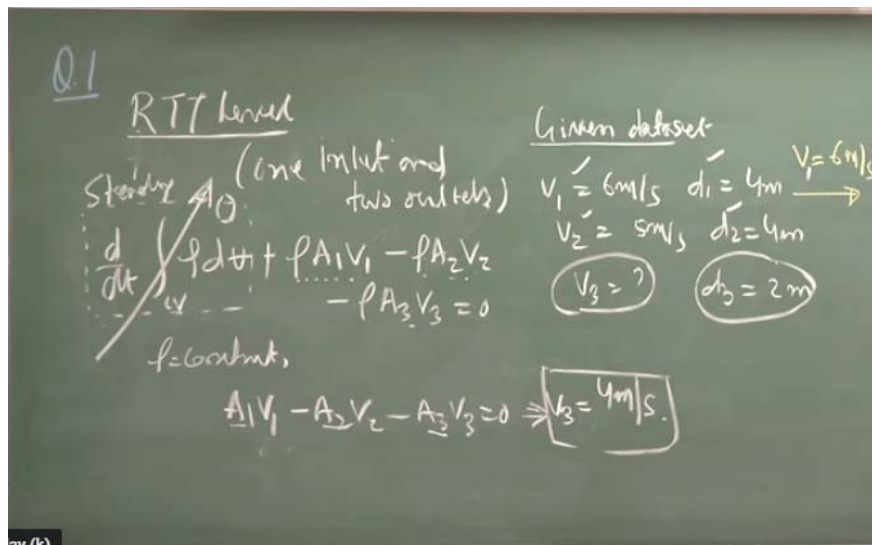 Q.1
RTT
(one Inlet and
two outlets)
Steady
0
d/dt ∫ ρd∀ + ρA₁V₁ - ρA₂V₂
cv
- ρA₃V₃ = 0
ρ = constant,
A₁V₁ - A₂V₂ - A₃V₃ = 0 ⇒ V₃ = 4m/s.
Given dataset
V₁ = 6m/s d₁ = 4m
V₂ = 5m/s d₂ = 4m
V₃ = ? d₃ = 2m
V₁ = 6m/s
ay (k)